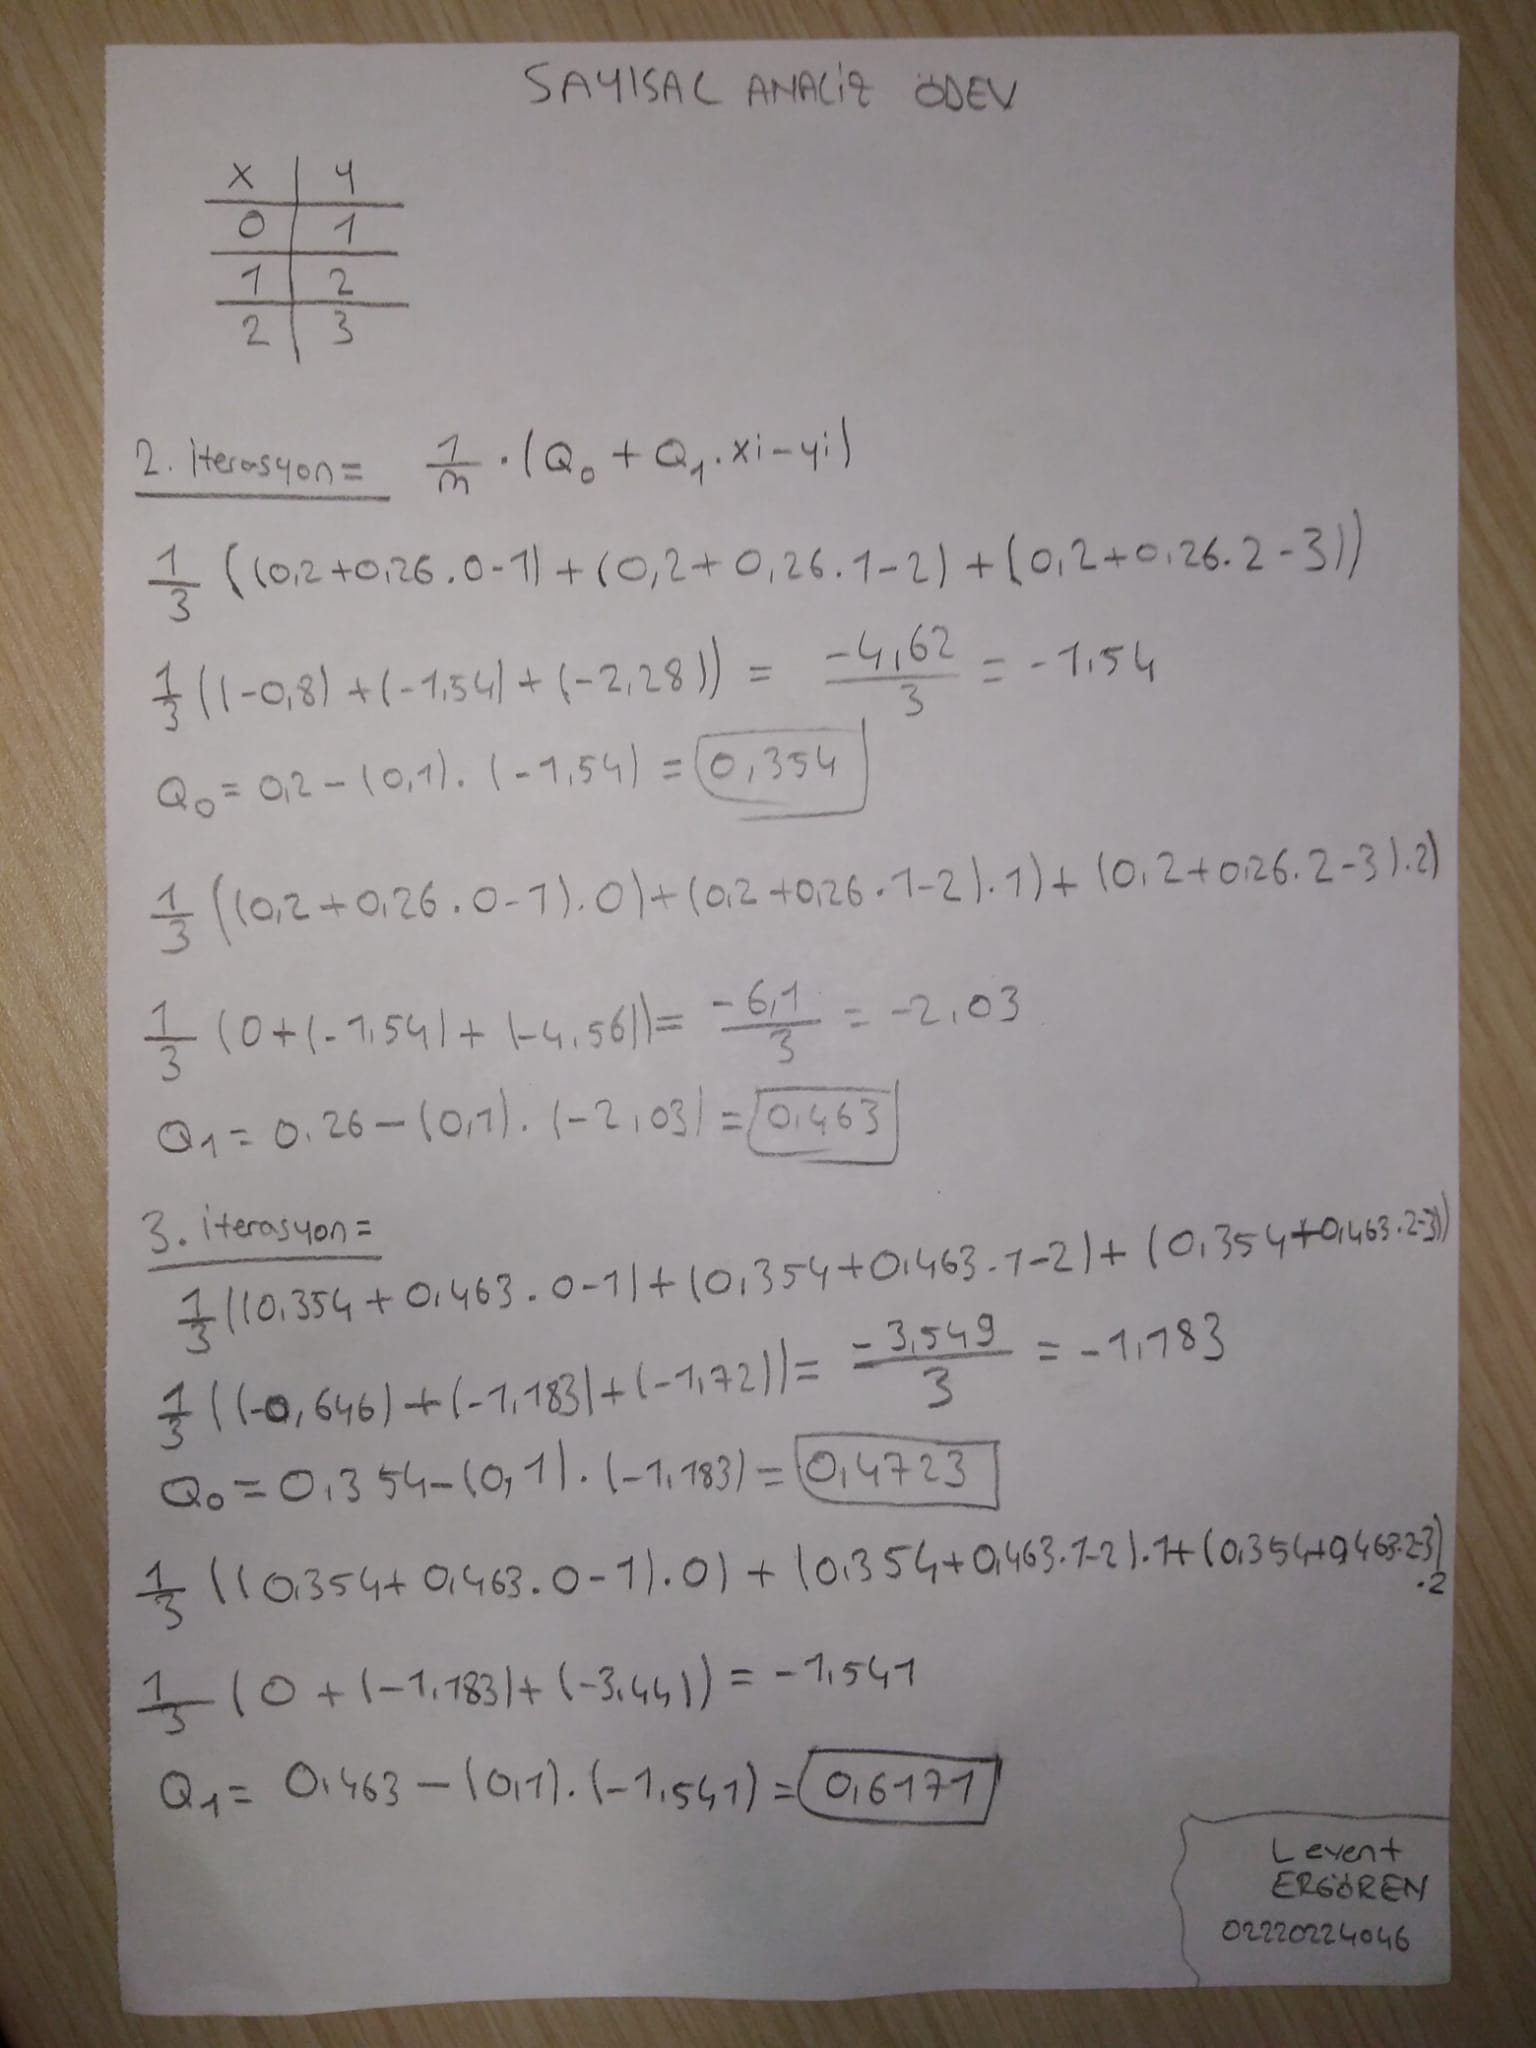 SAYISAL ANALİZ ÖDEV
x | y
0 | 1
1 | 2
2 | 3
2. iterasyon = 1/m . (Q₀ + Q₁.xi-yi)
1/3 ((0,2+0,26.0-1) + (0,2+0,26.1-2) + (0,2+0,26.2-3))
1/3 ((-0,8) + (-1,54) + (-2,28)) = -4,62/3 = -1,54
Q₀ = 0,2 - (0,1). (-1,54) = 0,354
1/3 ((0,2+0,26.0-1).0) + (0,2+0,26.1-2).1) + (0,2+0,26.2-3).2)
1/3 (0 + (-1,54) + (-4,56)) = -6,1/3 = -2,03
Q₁ = 0,26 - (0,1). (-2,03) = 0,463
3. iterasyon =
1/3 ((0,354 + 0,463.0-1) + (0,354+0,463.1-2) + (0,354+0,463.2-3))
1/3 ((-0,646) + (-1,183) + (-1,72)) = -3,549/3 = -1,183
Q₀ = 0,354 - (0,1). (-1,183) = 0,4723
1/3 ((0,354 + 0,463.0-1).0) + (0,354+0,463.1-2).1 + (0,354+0,463.2-3) .2
1/3 (0 + (-1,183) + (-3,44)) = -1,541
Q₁ = 0,463 - (0,1). (-1,541) = 0,6171
Levent
ERGÖREN
02220224046